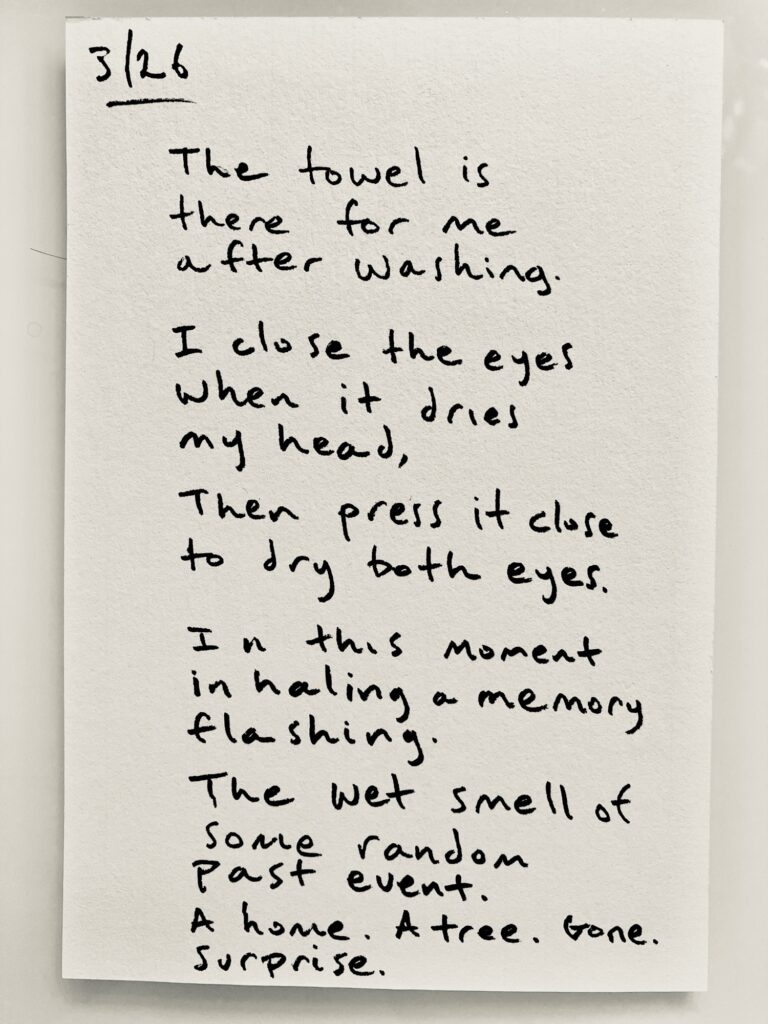 3/26
The towel is
there for me
after washing.
I close the eyes
when it dries
my head,
Then press it close
to dry both eyes.
In this moment
inhaling a memory
flashing.
The wet smell of
some random
past event.
A home. A tree. Gone.
surprise.